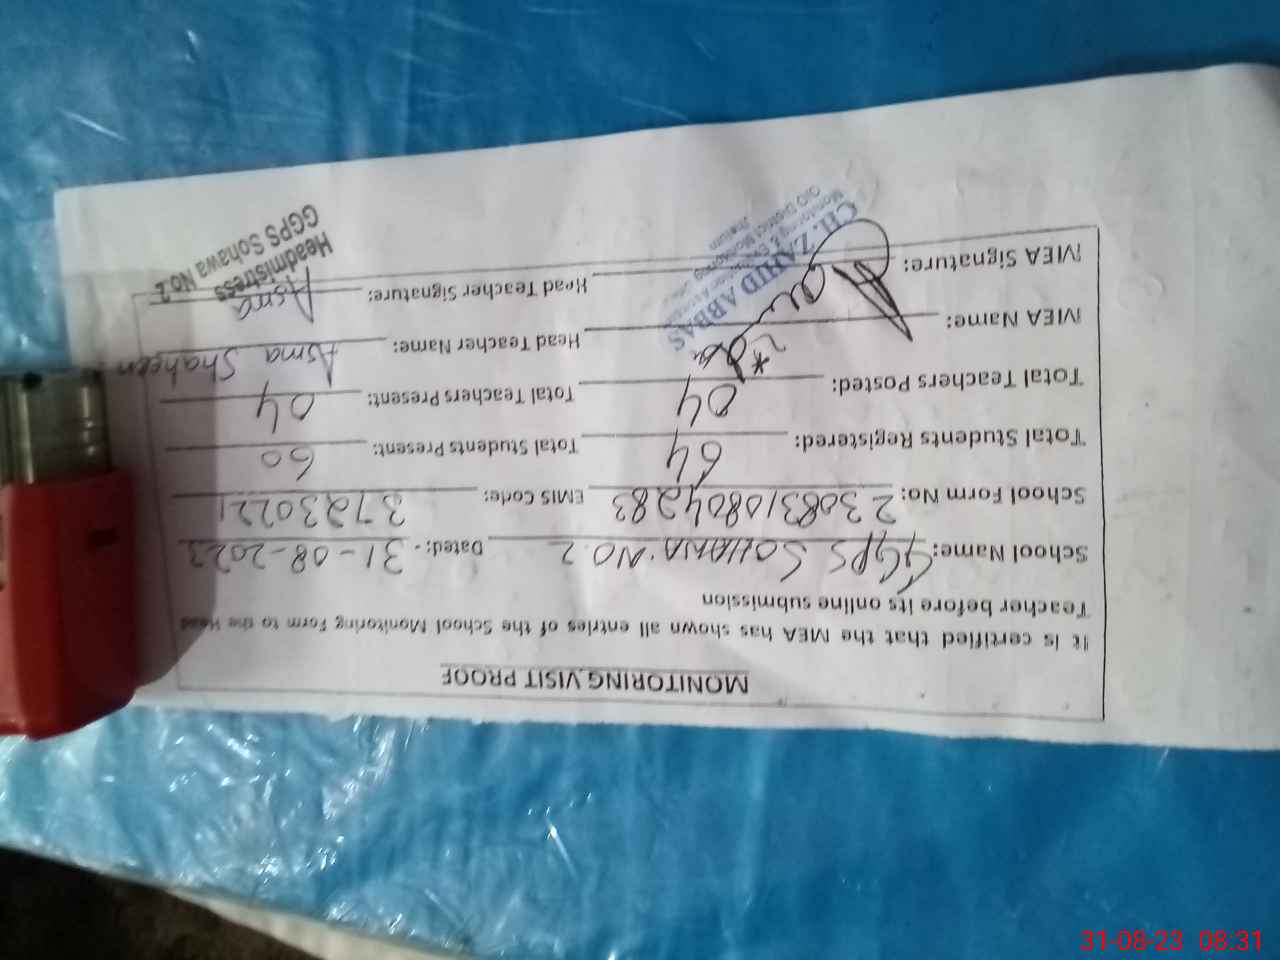 MONITORING VISIT PROOF
It is certified that the MEA has shown all entries of the School Monitoring Form to the Head
Teacher before its online submission
School Name: GGPS SOHAWA NO.2 Dated:- 31-08-2023
School Form No: 2308310804283 EMIS Code: 37230221
Total Students Registered: 64 Total Students Present: 60
Total Teachers Posted: 04 Total Teachers Present: 04
MEA Name: Head Teacher Name: Asma Shaheen
MEA Signature: Head Teacher Signature: Asma
CH. ZAHID ABBAS
Headmistress
GGPS Sohawa No.2
31-08-23 08:31